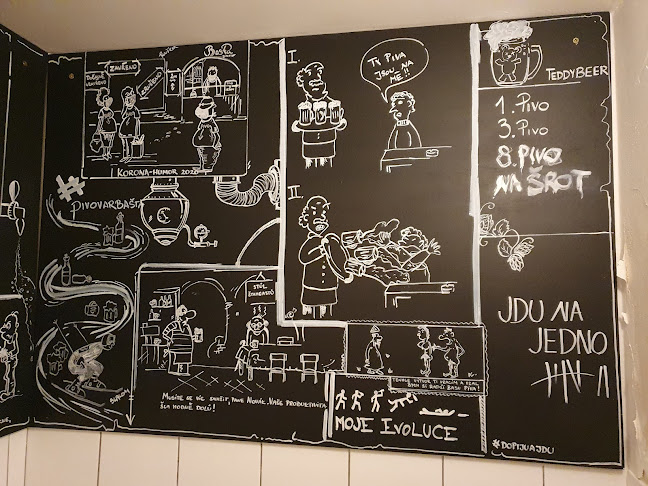 ZAVŘENO
BUSTA
I KORONA-HUMOR 2020
# PIVOVARBAŠTA
I.
TY PIVA
JSOU NA
MĚ!!
II.
TEDDYBEER
1. PIVO
3. PIVO
8. PIVO
NA ŠROT
JDU NA
JEDNO
#DOPIJUAJDU
STŮL
MUSÍTE SE VÍC SNAŽIT, PANE NOVÁK. VAŠE PRODUKTIVITA
ŠLA HODNĚ DOLŮ!
MOJE EVOLUCE